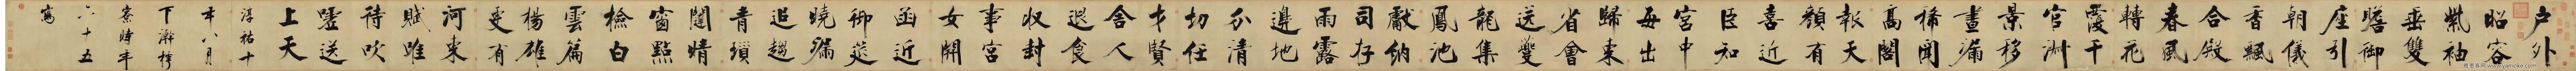 户外
昭容
紫袖
垂雙
瞻御
座引
朝儀
香飄
合殿
春風
轉花
覆千
官淑
景移
晝漏
稀聞
高閣
報天
顏有
喜近
臣知
宮中
每出
歸東
省會
送夔
龍集
鳳池
獻納
司存
雨露
邊地
分清
切任
才賢
舍人
退食
收封
事宮
女開
函近
御筵
曉漏
追趨
青瑣
闥晴
窗點
檢白
雲篇
楊雄
更有
河東
賦唯
待吹
噓送
上天
淳祐十
年八月
下澣樗
寮時年
六十五
寫